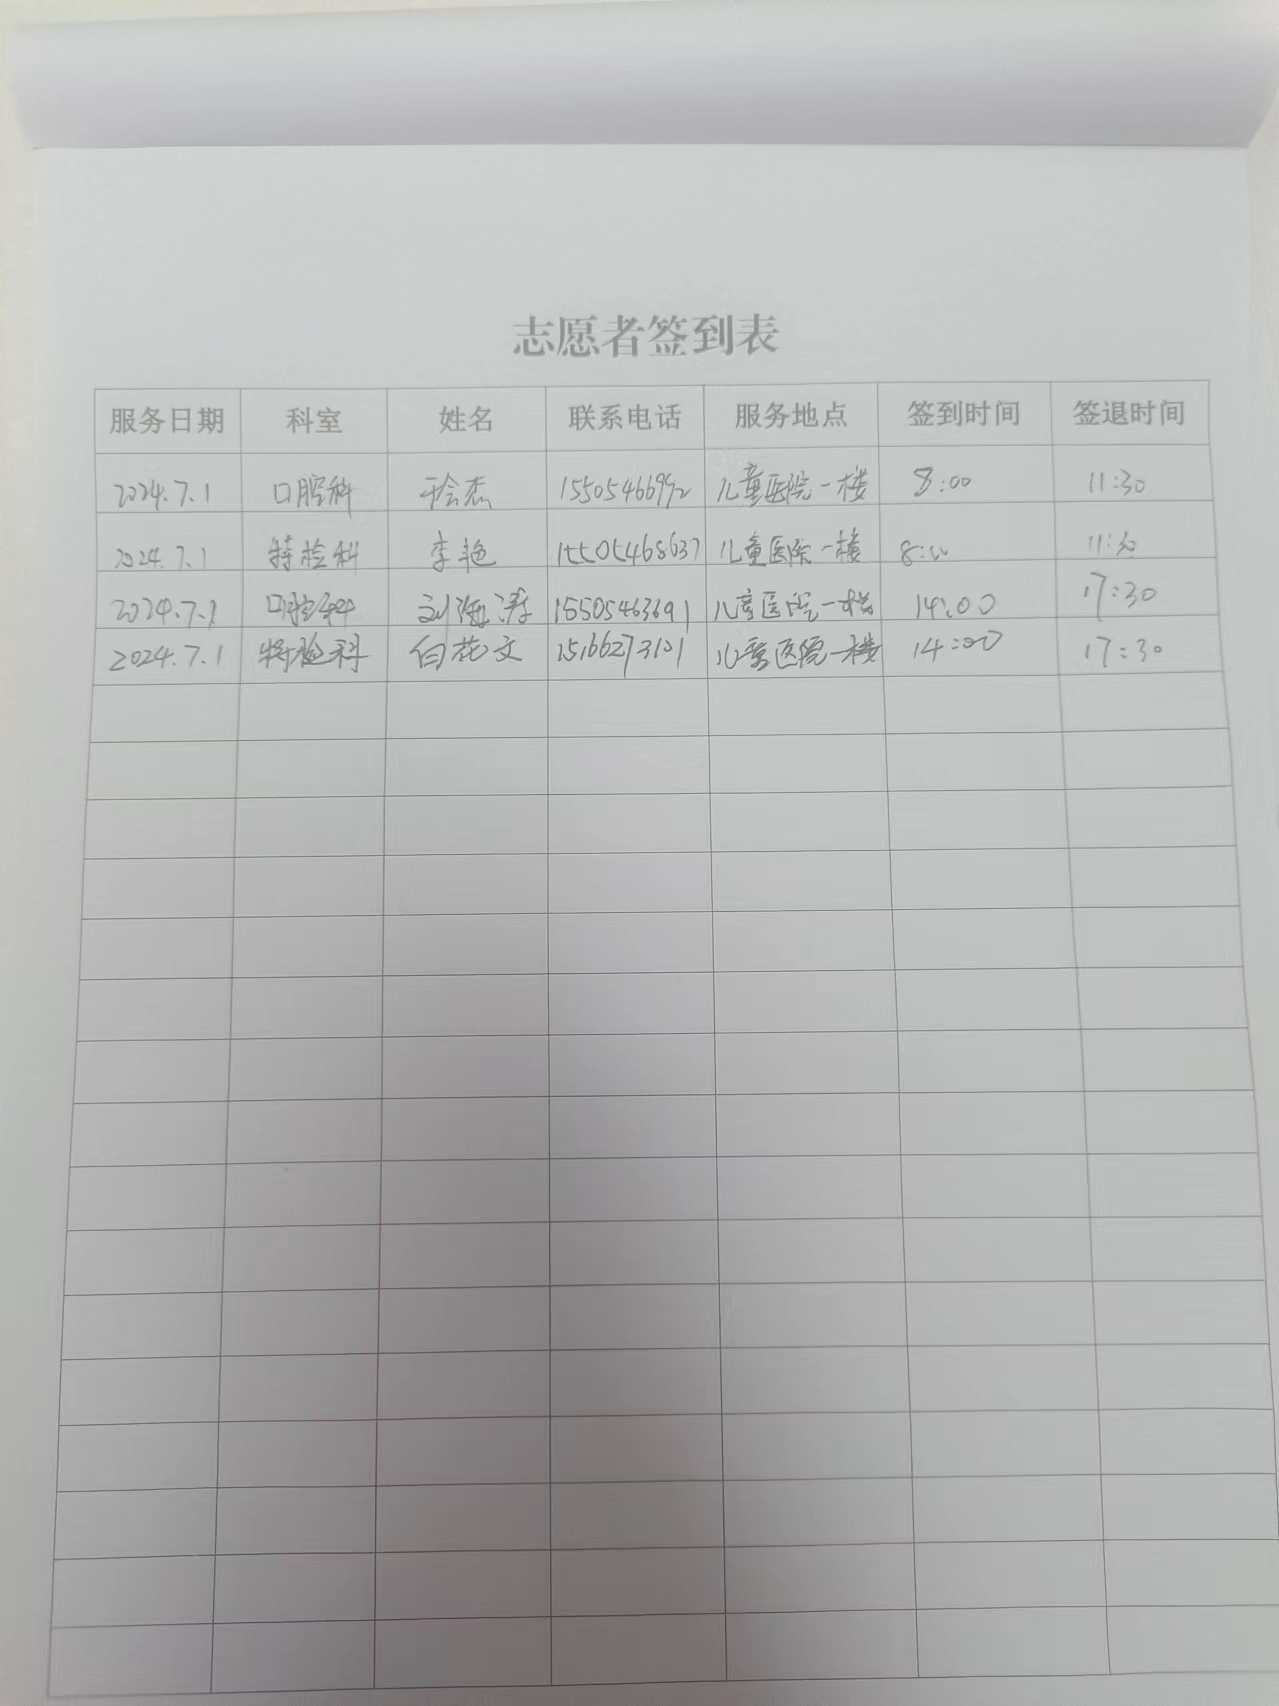 志愿者签到表
服务日期 科室 姓名 联系电话 服务地点 签到时间 签退时间
2024.7.1 口腔科 15505466992 儿童医院一楼 8:00 11:30
2024.7.1 特检科 李艳 15505468637 儿童医院一楼 8:00 11:30
2024.7.1 口腔科 刘海涛 15505463691 儿童医院一楼 14:00 17:30
2024.7.1 特检科 白花文 15166273121 儿童医院一楼 14:00 17:30